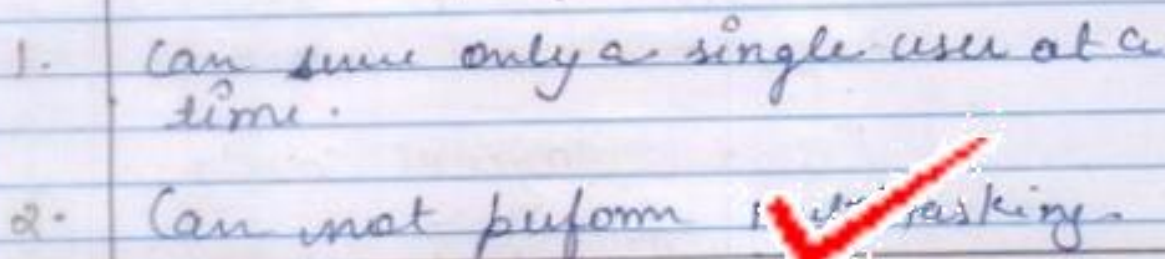 1. Can serve only a single user at a
time.
2. Can not perform multitasking.